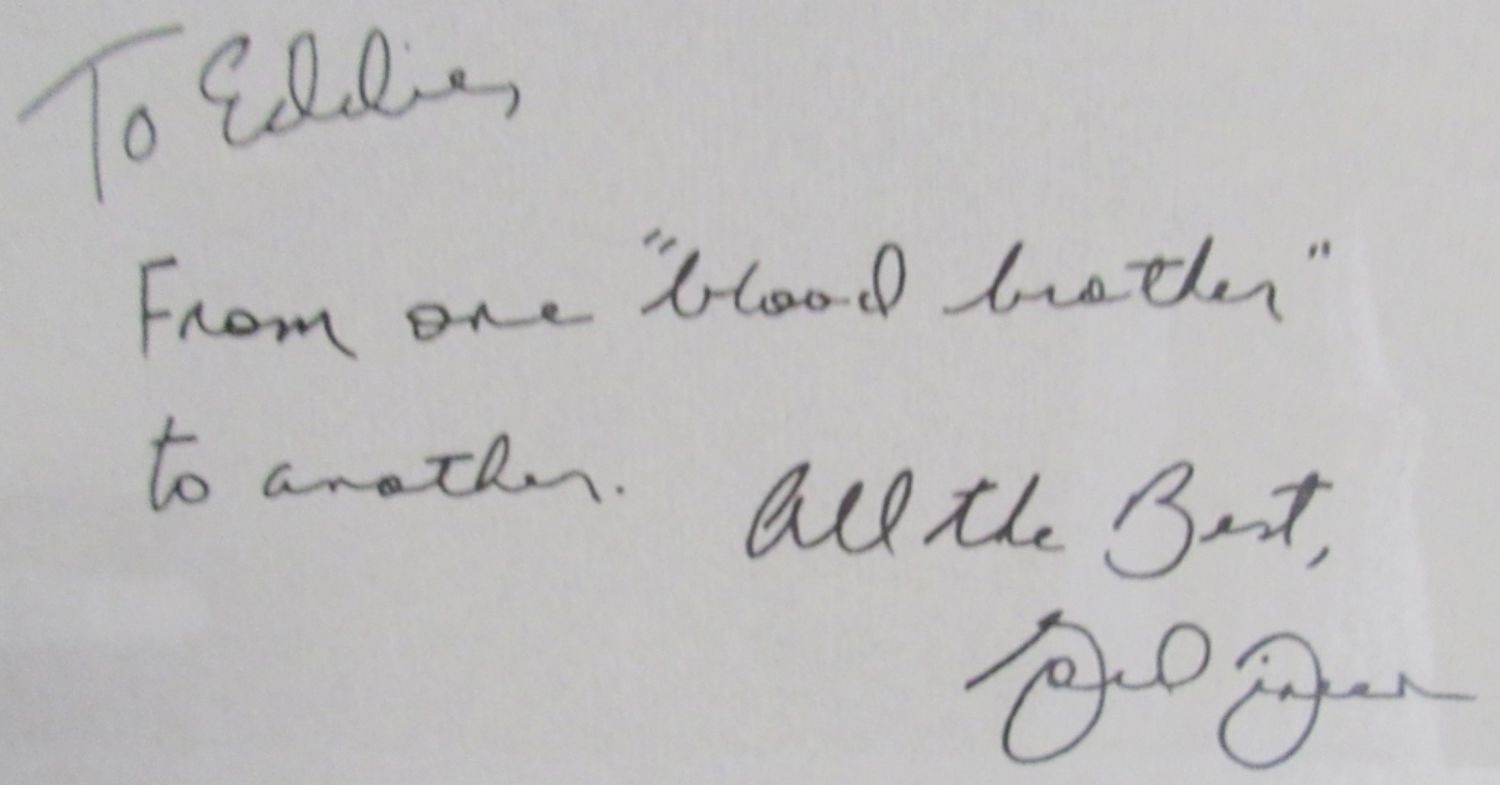 To Eddie,
From one "blood brother"
to another.
All the Best,